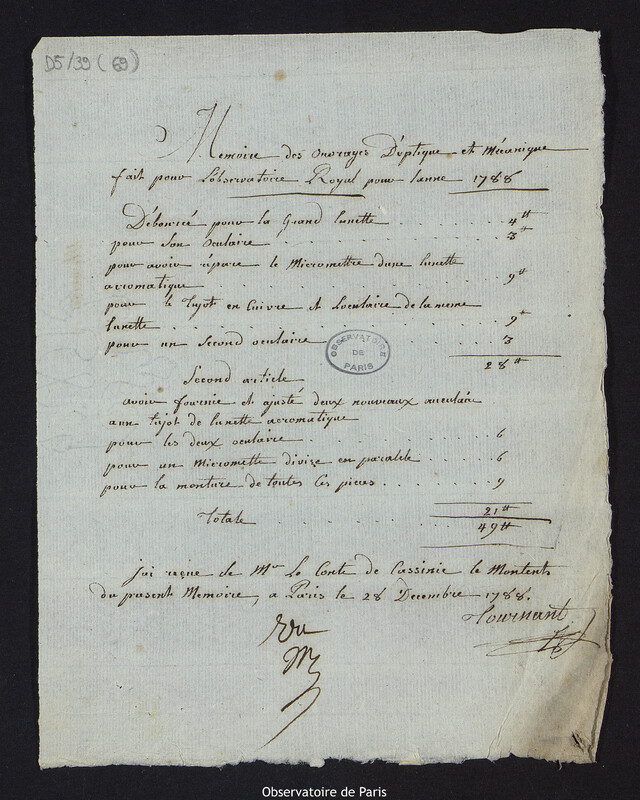 D5/39 (69)
Memoire des ouvrages D'optique et Mécanique
fait pour L'observatoire Royal pour lanne 1788
Débourcé pour la Grand lunette . . . . . 4tt
pour Son oculaire . . . . . . . . . . 3tt
pour avoir répare le Micromettre dune lunette
acromatique . . . . . . . . . . . . 9tt
pour le Tujot en Cuivre et Loculaire de la meme
lunette . . . . . . . . . . . . . 9tt
pour un Second oculaire . . . . . . . 3
OBSERVATOIRE
DE
PARIS
28tt
Second article
avoir fournie et ajusté deux nouveaux
ann tujot de lunette acromatique
pour les deux oculaire . . . . . . . . 6
pour un Micromette divize en paralele . . . . 6
pour la monture de toutes Ces pieces . . . . . . 9
21tt
Totale . . . . . . . . . 49tt
jai reçue de Mr Le Conte de Cassinie le Montent
du present Memoire, a Paris le 28 Decembre 1788.
Tournant
Vu
Observatoire de Paris